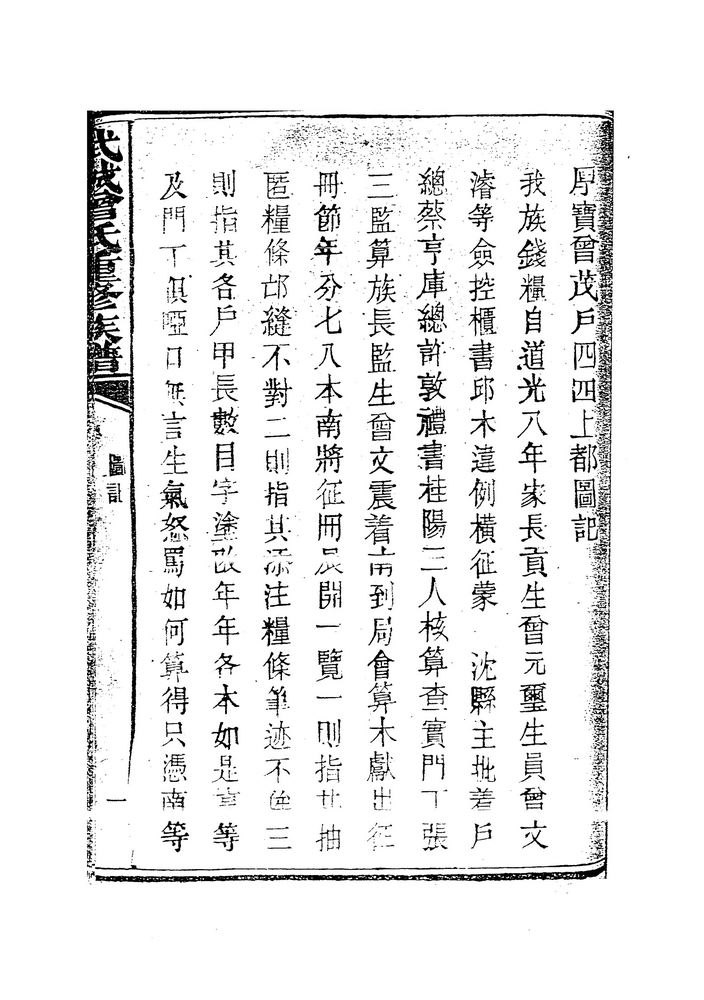 厚寶曾茂戶四四上都圖記
我族錢糧自道光八年家長貢生曾元璽生員曾文
濬等僉控櫃書邱木違例橫征蒙 沈縣主批着戶
總蔡亨庫總許敦禮書桂陽三人核算查實門丁張
三監算族長監生曾文震着南到局會算木獻出征
冊節年分七八本南將征冊展開一覽一則指其抽
匿糧條邙縫不對二則指其添注糧條筆迹不侔三
則指其各戶甲長數目字塗改年年各本如是書等
及門丁俱啞口無言生氣怒罵如何算得只憑南等
武城曾氏重修族譜
圖記
一